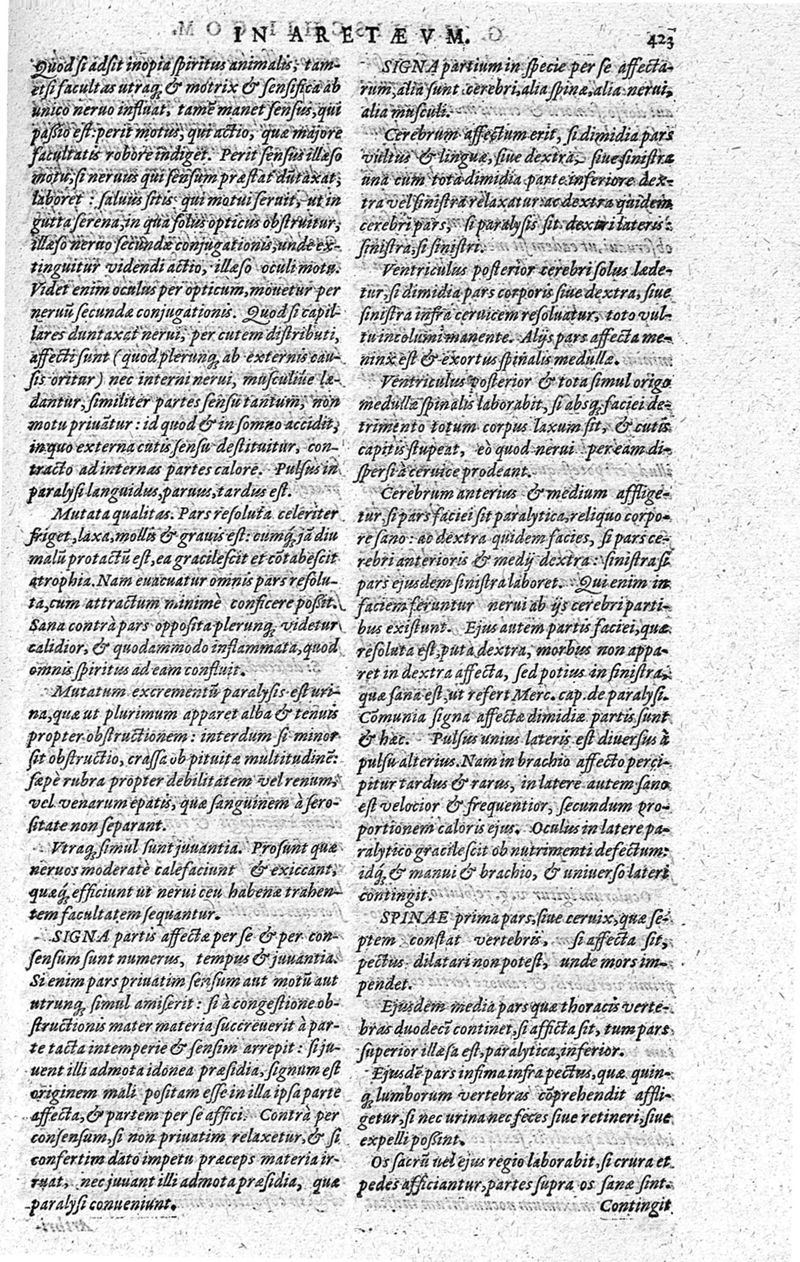 IN ARETÆVM.
423
Quod si adsit inopia spiritus animalis; tam-
etsi facultas utraq; & motrix & sensifica ab
unico neruo influat, tamē manet sensus, qui
passio est: perit motus, qui actio, quæ majore
facultatis robore indiget. Perit sensus illæso
motu, si neruus qui sensum præstat dūtaxat,
laboret: saluus sit is qui motui seruit, ut in
gutta serena, in qua solus opticus obstruitur,
illæso neruo secundæ conjugationis, unde ex-
tinguitur videndi actio, illæso oculi motu.
Videt enim oculus per opticum, mouetur per
neruū secundæ conjugationis. Quod si capil-
lares duntaxat nerui, per cutem distributi,
affecti sunt (quod plerunq; ab externis cau-
sis oritur) nec interni nerui, musculiue læ-
dantur, similiter partes sensu tantum, non
motu priuātur: id quod & in somno accidit,
in quo externa cutis sensu destituitur, con-
tracto ad internas partes calore. Pulsus in
paralysi languidus, paruus, tardus est.
Mutata qualitas. Pars resoluta celeriter
friget, laxa, mollis & grauis est: cumq; jā diu
malū protactū est, ea gracilescit et cōtabescit
atrophia. Nam euacuatur omnis pars resolu-
ta, cum attractum minimè conficere possit.
Sana contrà pars opposita plerunq; videtur
calidior, & quodammodo inflammata, quod
omnis spiritus ad eam confluit.
Mutatum excrementū paralysis est uri-
na, quæ ut plurimum apparet alba & tenuis
propter obstructionem: interdum si minor
sit obstructio, crassa ob pituitæ multitudinē:
sæpè rubra propter debilitatem vel renum,
vel venarum epatis, quæ sanguinem à sero-
sitate non separant.
Vtraq; simul sunt juuantia. Prosunt quæ
neruos moderatè calefaciunt & exiccant,
quæq; efficiunt ut nerui ceu habenæ trahen-
tem facultatem sequantur.
SIGNA partis affectæ per se & per con-
sensum sunt numerus, tempus & juuantia.
Si enim pars priuatim sensum aut motū aut
utrunq; simul amiserit: si à congestione ob-
structionis mater materia succreuerit à par-
te tacta intemperie & sensim arrepit: si ju-
uent illi admota idonea præsidia, signum est
originem mali positam esse in illa ipsa parte
affecta, & partem per se affici. Contrà per
consensum, si non priuatim relaxetur, & si
confertim dato impetu præceps materia ir-
ruat, nec juuant illi admota præsidia, quæ
paralysi conueniunt.
SIGNA partium in specie per se affecta-
rum, alia sunt cerebri, alia spinæ, alia nerui,
alia musculi.
Cerebrum affectum erit, si dimidia pars
vultus & linguæ, siue dextra, siue sinistra
una cum tota dimidia parte inferiore dex-
tra vel sinistra relaxatur: ac dextra quidem
cerebri pars, si paralysis sit dextri lateris:
sinistra, si sinistri.
Ventriculus posterior cerebri solus læde-
tur, si dimidia pars corporis siue dextra, siue
sinistra infra ceruicem resoluatur, toto vul-
tu incolumi manente. Alijs pars affecta me-
ninx est & exortus spinalis medullæ.
Ventriculus posterior & tota simul origo
medullæ spinalis laborabit, si absq; faciei de-
trimento totum corpus laxum sit, & cutis
capitis stupeat, eò quod nerui per eam di-
spersi à ceruice prodeant.
Cerebrum anterius & medium affligé-
tur, si pars faciei sit paralytica, reliquo corpo-
re sano: ac dextra quidem facies, si pars ce-
rebri anterioris & medij dextra: sinistra si
pars ejusdem sinistra laboret. Qui enim in
faciem feruntur nerui ab ijs cerebri parti-
bus existunt. Ejus autem partis faciei, quæ
resoluta est, puta dextra, morbus non appa-
ret in dextra affecta, sed potius in sinistra,
quæ sana est, ut refert Merc. cap. de paralysi.
Cōmunia signa affectæ dimidiæ partis sunt
& hæc. Pulsus unius lateris est diuersus à
pulsu alterius. Nam in brachio affecto perci-
pitur tardus & rarus, in latere autem sano
est velocior & frequentior, secundum pro-
portionem caloris ejus. Oculus in latere pa-
ralytico gracilescit ob nutrimenti defectum:
idq; & manui & brachio, & universo lateri
contingit.
SPINAE prima pars, siue ceruix, quæ se-
ptem constat vertebris, si affecta sit,
pectus dilatari non potest, unde mors im-
pendet.
Ejusdem media pars quæ thoracis verte-
bras duodecī continet, si afficta sit, tum pars
superior illæsa est, paralytica, inferior.
Ejusdē pars infima infra pectus, quæ quin-
q; lumborum vertebras cōprehendit affli-
getur, si nec urina nec feces siue retineri, siue
expelli possint.
Os sacrū uel ejus regio laborabit, si crura et
pedes afficiantur, partes supra os sanæ sint.
Contingit